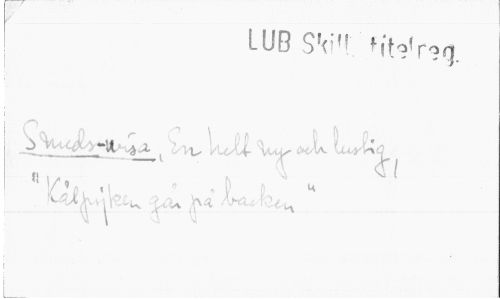 LUB Skill. titelreg.
Smeds-wisa, En helt ny och lustig,
"Kålpijken går på backen"